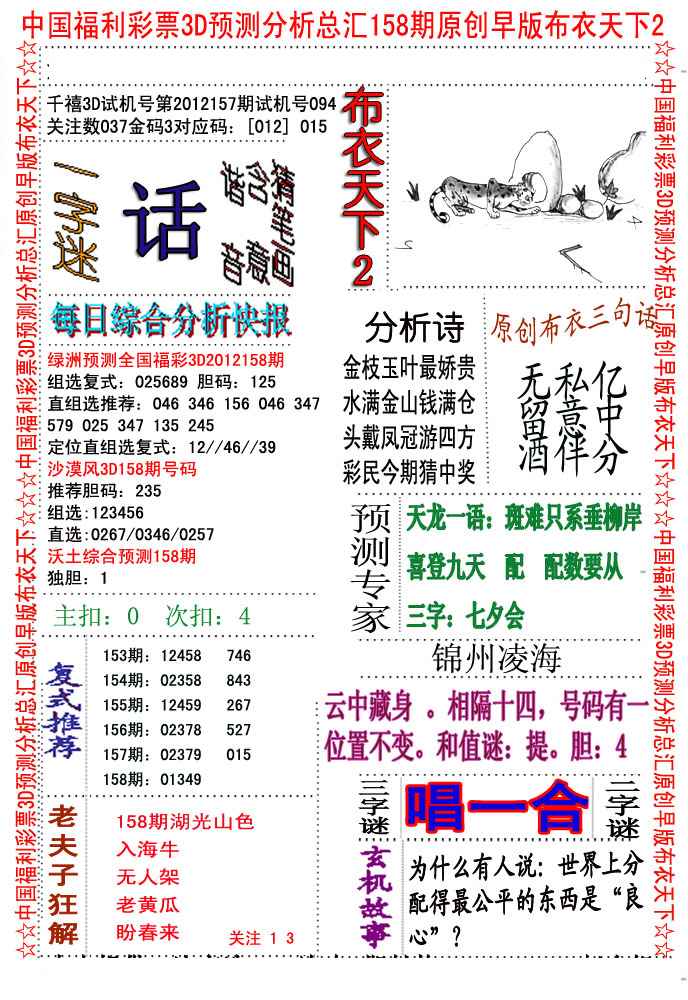 中国福利彩票3D预测分析总汇158期原创早版布衣天下2
☆☆中国福利彩票3D预测分析总汇原创早版布衣天下☆☆☆中国福利彩票3D预测分析总汇原创早版布衣天下☆☆
千禧3D试机号第2012157期试机号094
关注数037金码3对应码：[012] 015
一字迷
话
谐音
含意
猜笔画
布衣天下2
每日综合分析快报
绿洲预测全国福彩3D2012158期
组选复式：025689 胆码：125
直组选推荐：046 346 156 046 347
579 025 347 135 245
定位直组选复式：12//46//39
沙漠风3D158期号码
推荐胆码：235
组选:123456
直选:0267/0346/0257
沃土综合预测158期
独胆：1
主扣：0 次扣：4
分析诗
金枝玉叶最娇贵
水满金山钱满仓
头戴凤冠游四方
彩民今期猜中奖
原创布衣三句话
亿中分
私意伴
无留酒
预测专家
天龙一语：斑难只系垂柳岸
喜登九天 配 配数要从
三字：七夕会
锦州凌海
复式推荐
153期：12458 746
154期：02358 843
155期：12459 267
156期：02378 527
157期：02379 015
158期：01349
云中藏身 。相隔十四，号码有一
位置不变。和值谜：提。胆：4
三字谜
唱一合
二字谜
老夫子狂解
158期湖光山色
入海牛
无人架
老黄瓜
盼春来
关注 1 3
玄机故事
为什么有人说：世界上分
配得最公平的东西是“良
心”？
☆☆中国福利彩票3D预测分析总汇原创早版布衣天下☆☆☆中国福利彩票3D预测分析总汇原创早版布衣天下☆☆